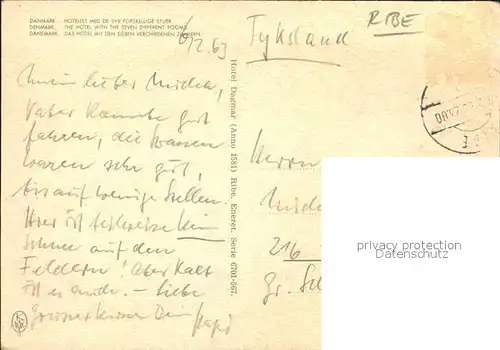 DANMARK. HOTELLET MED DE SYV FORSKELLIGE STUER
DENMARK. THE HOTEL WITH THE SEVEN DIFFERENT ROOMS
DÄNEMARK. DAS HOTEL MIT DEN SIEBEN VERCHIEDENEN ZIMMERN
6/2.63
Tyksland
RIBE
Mein lieber
Vater konnte gut
fahren, die Strassen
waren sehr gut,
bis auf wenige Stellen.
Hier ist kein
Schnee auf den
Feldern! Aber kalt
ist es auch. - Liebe
Dein
Hotel Dagmar (Anno 1581) Ribe. Eneret. Serie 6701-567.
Herrn
216
Gr. Sch
privacy protection
Datenschutz